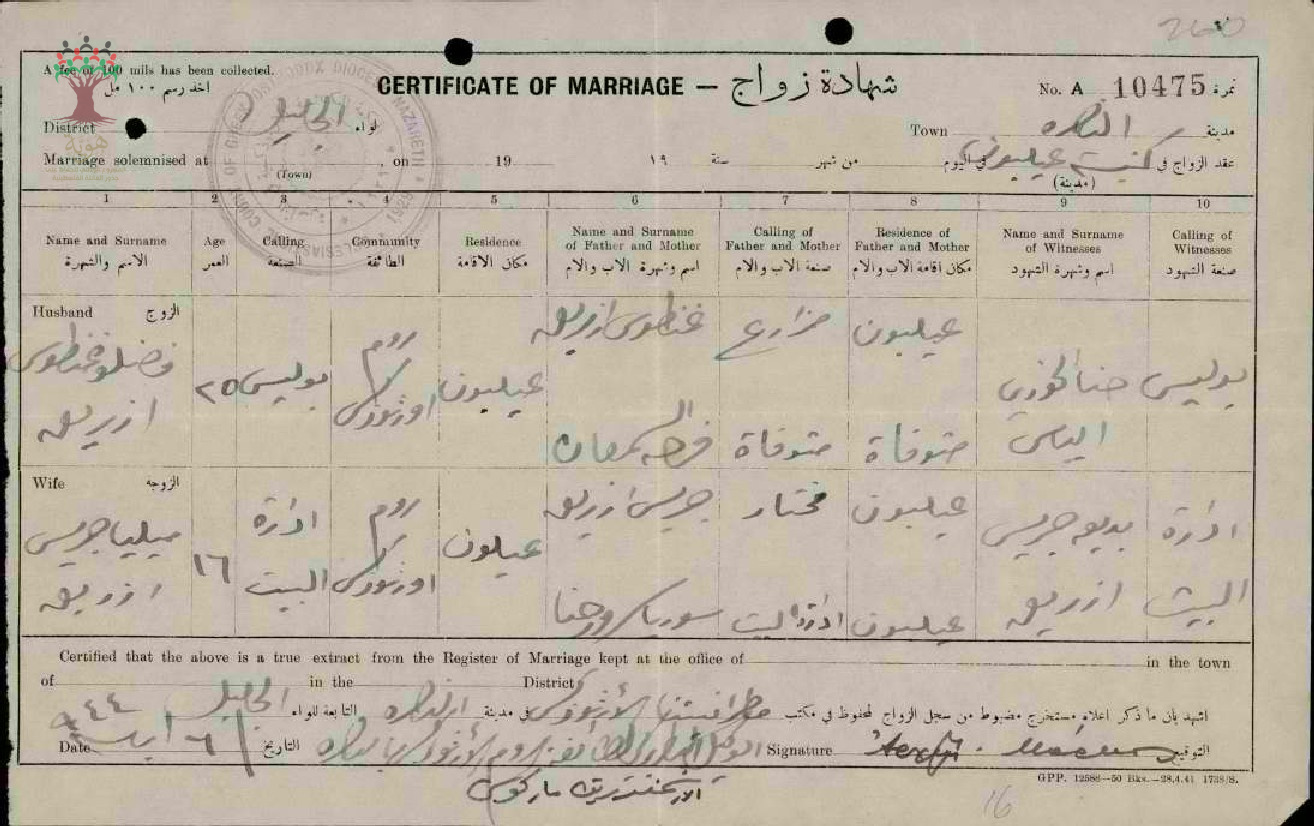 2600
A fee of 100 mils has been collected.
اخذ رسم ١٠٠ مل
CERTIFICATE OF MARRIAGE — شهادة زواج
No. A 10475 نمرة
District الجليل لواء
Town الناصرة مدينة
Marriage solemnised at , on 19 ١٩ سنة من شهر في اليوم كنيسة عيلبون عقد الزواج في
(Town) (مدينة)
1 2 3 4 5 6 7 8 9 10
Name and Surname الاسم والشهرة
Age العمر
Calling الصنعة
Community الطائفة
Residence مكان الاقامة
Name and Surname of Father and Mother اسم وشهرة الاب والام
Calling of Father and Mother صنعة الاب والام
Residence of Father and Mother مكان اقامة الاب والام
Name and Surname of Witnesses اسم وشهرة الشهود
Calling of Witnesses صنعة الشهود
Husband الزوج
ازريق
٢٥
بوليس
روم اورثوذكس
عيلبون
غنطوس ازريق
مزارع
عيلبون
متوفاة
متوفاة
حنا الخوري الياس
بوليس
Wife الزوجه
ميليا جريس ازريق
١٦
ادارة البيت
روم اورثوذكس
عيلبون
جريس ازريق
مختار
عيلبون
حنا
ادارة البيت
عيلبون
بديع جريس ازريق
ادارة البيت
Certified that the above is a true extract from the Register of Marriage kept at the office of in the town
of in the District
اشهد بان ما ذكر اعلاه مستخرج مضبوط من سجل الزواج المحفوظ في مكتب الأرثوذكس في مدينة الناصرة التابعة للواء الجليل
Date التاريخ Signature التوقيع
الارشمندريت ماركوس
GPP. 12588—50 Bks.—28.4.41 1738/8.
16